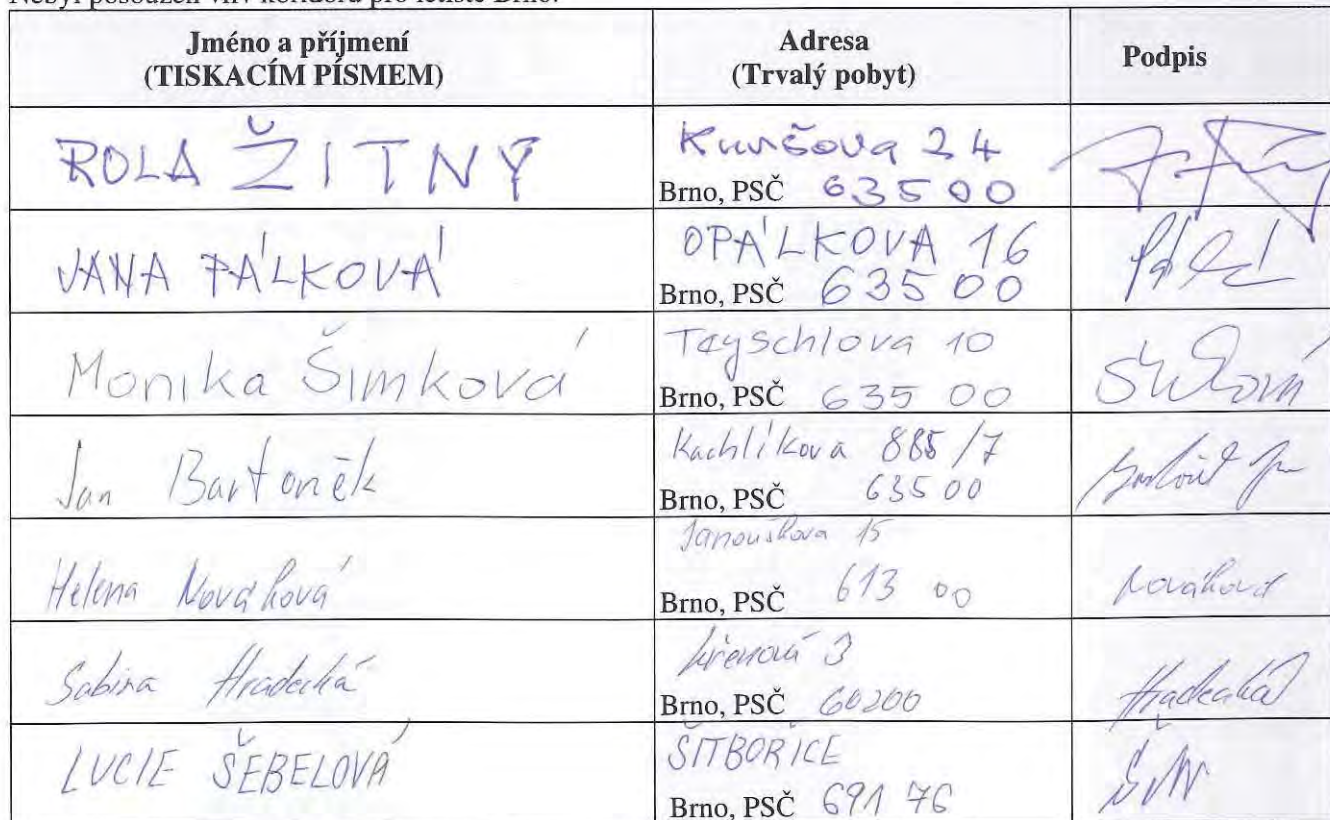 Nebyl posouzen vliv koridoru pro letiště Brno.
Jméno a příjmení
(TISKACÍM PÍSMEM)
Adresa
(Trvalý pobyt)
Podpis
ROLA ŽITNÝ
Kunšova 24
Brno, PSČ 63500
JANA PÁLKOVÁ
OPÁLKOVA 16
Brno, PSČ 635 00
Monika Šimková
Teyschlova 10
Brno, PSČ 635 00
Jan Bartoněk
Kachlíkova 885/7
Brno, PSČ 63500
Helena Nováková
Janouškova 15
Brno, PSČ 613 00
Nováková
Sabina Hradecká
Křenová 3
Brno, PSČ 60200
Hradecká
LUCIE ŠEBELOVÁ
ŠITBOŘICE
Brno, PSČ 691 76